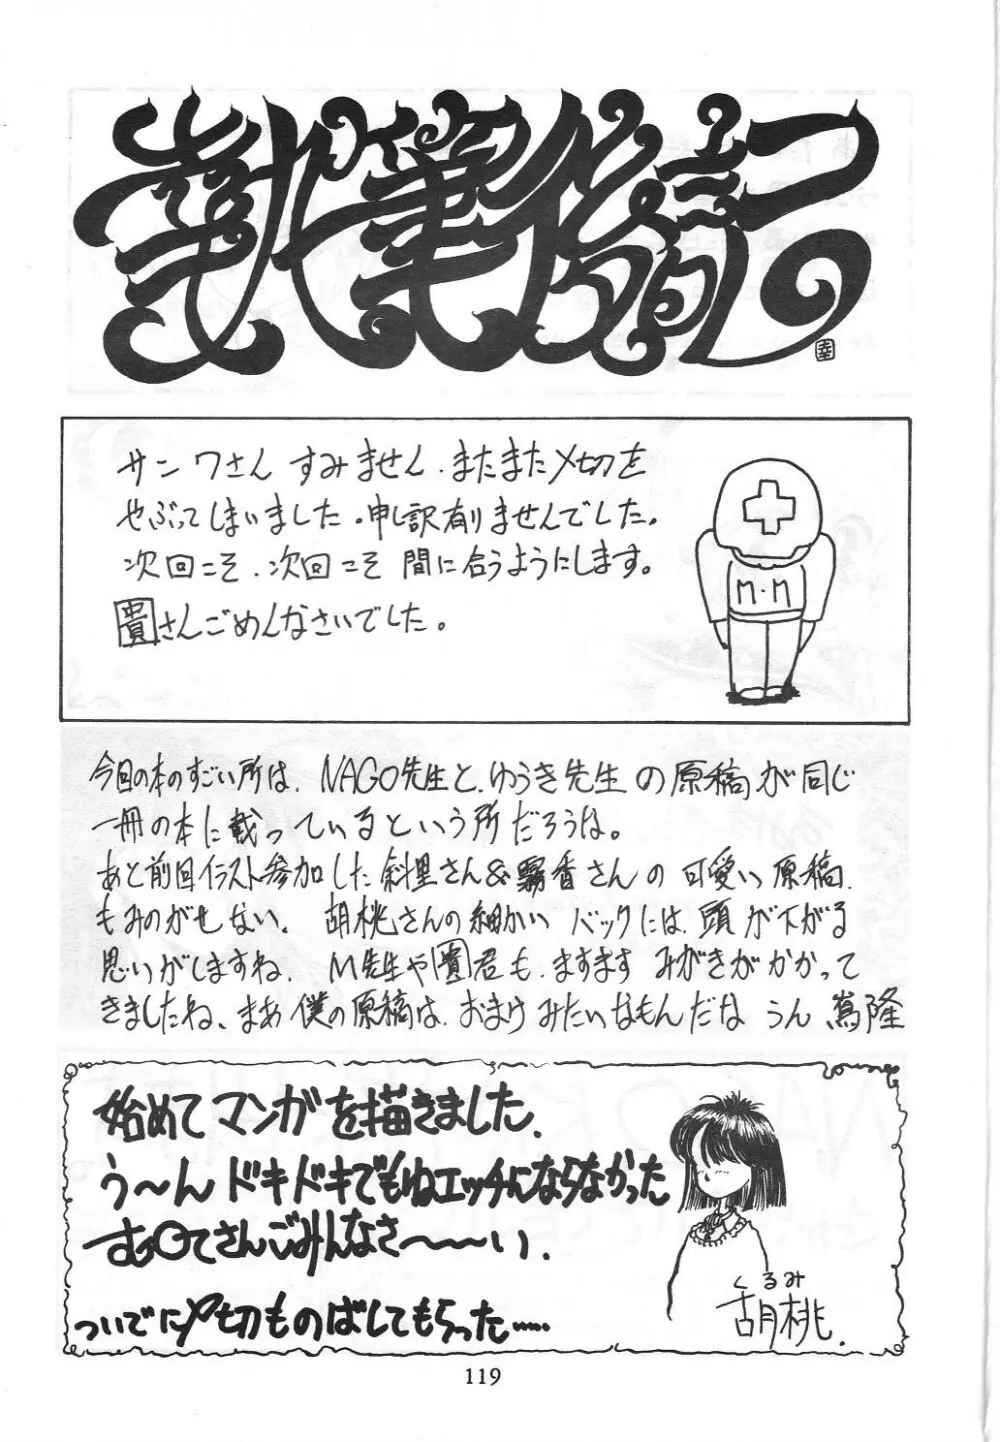 執筆後記
幸
サンワさん すみません、またまた〆切を
やぶってしまいました。申し訳有りませんでした。
次回こそ、次回こそ 間に合うようにします。
貴さんごめんなさいでした。
M・M
今回の本のすごい所は、NAGO先生と、ゆうき先生の原稿が同じ
一冊の本に載っているという所だろうな。
あと前回イラスト参加した斜里さん&霧香さんの可愛い原稿、
もみのがせない。胡桃さんの細かいバックには、頭が下がる
思いがしますね、M先生や貴君も、ますますみがきがかかって
きましたね、まあ僕の原稿は、おまけみたいなもんだな うん 嵩隆
始めてマンガを描きました、
う〜ん ドキドキでもねエッチにならなかった
む〇てさんごみんなさ〜〜〜い、
ついでに〆切ものばしてもらった……
くるみ
胡桃.
119